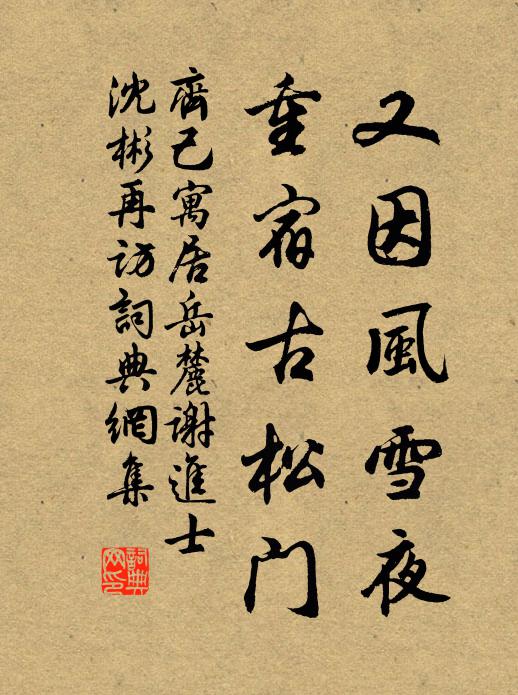 又因風雪夜
重宿古松门
齊己寓居岳麓谢進士
沈彬再访詞典網集
詞典网印